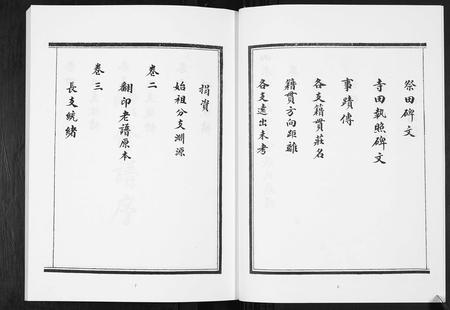 祭田碑文
寺田執照碑文
事蹟傳
各支籍貫莊名
籍貫方向距離
各支遠出未考
捐資
始祖分支淵源
卷二
翻印老譜原本
卷三
長支統緒